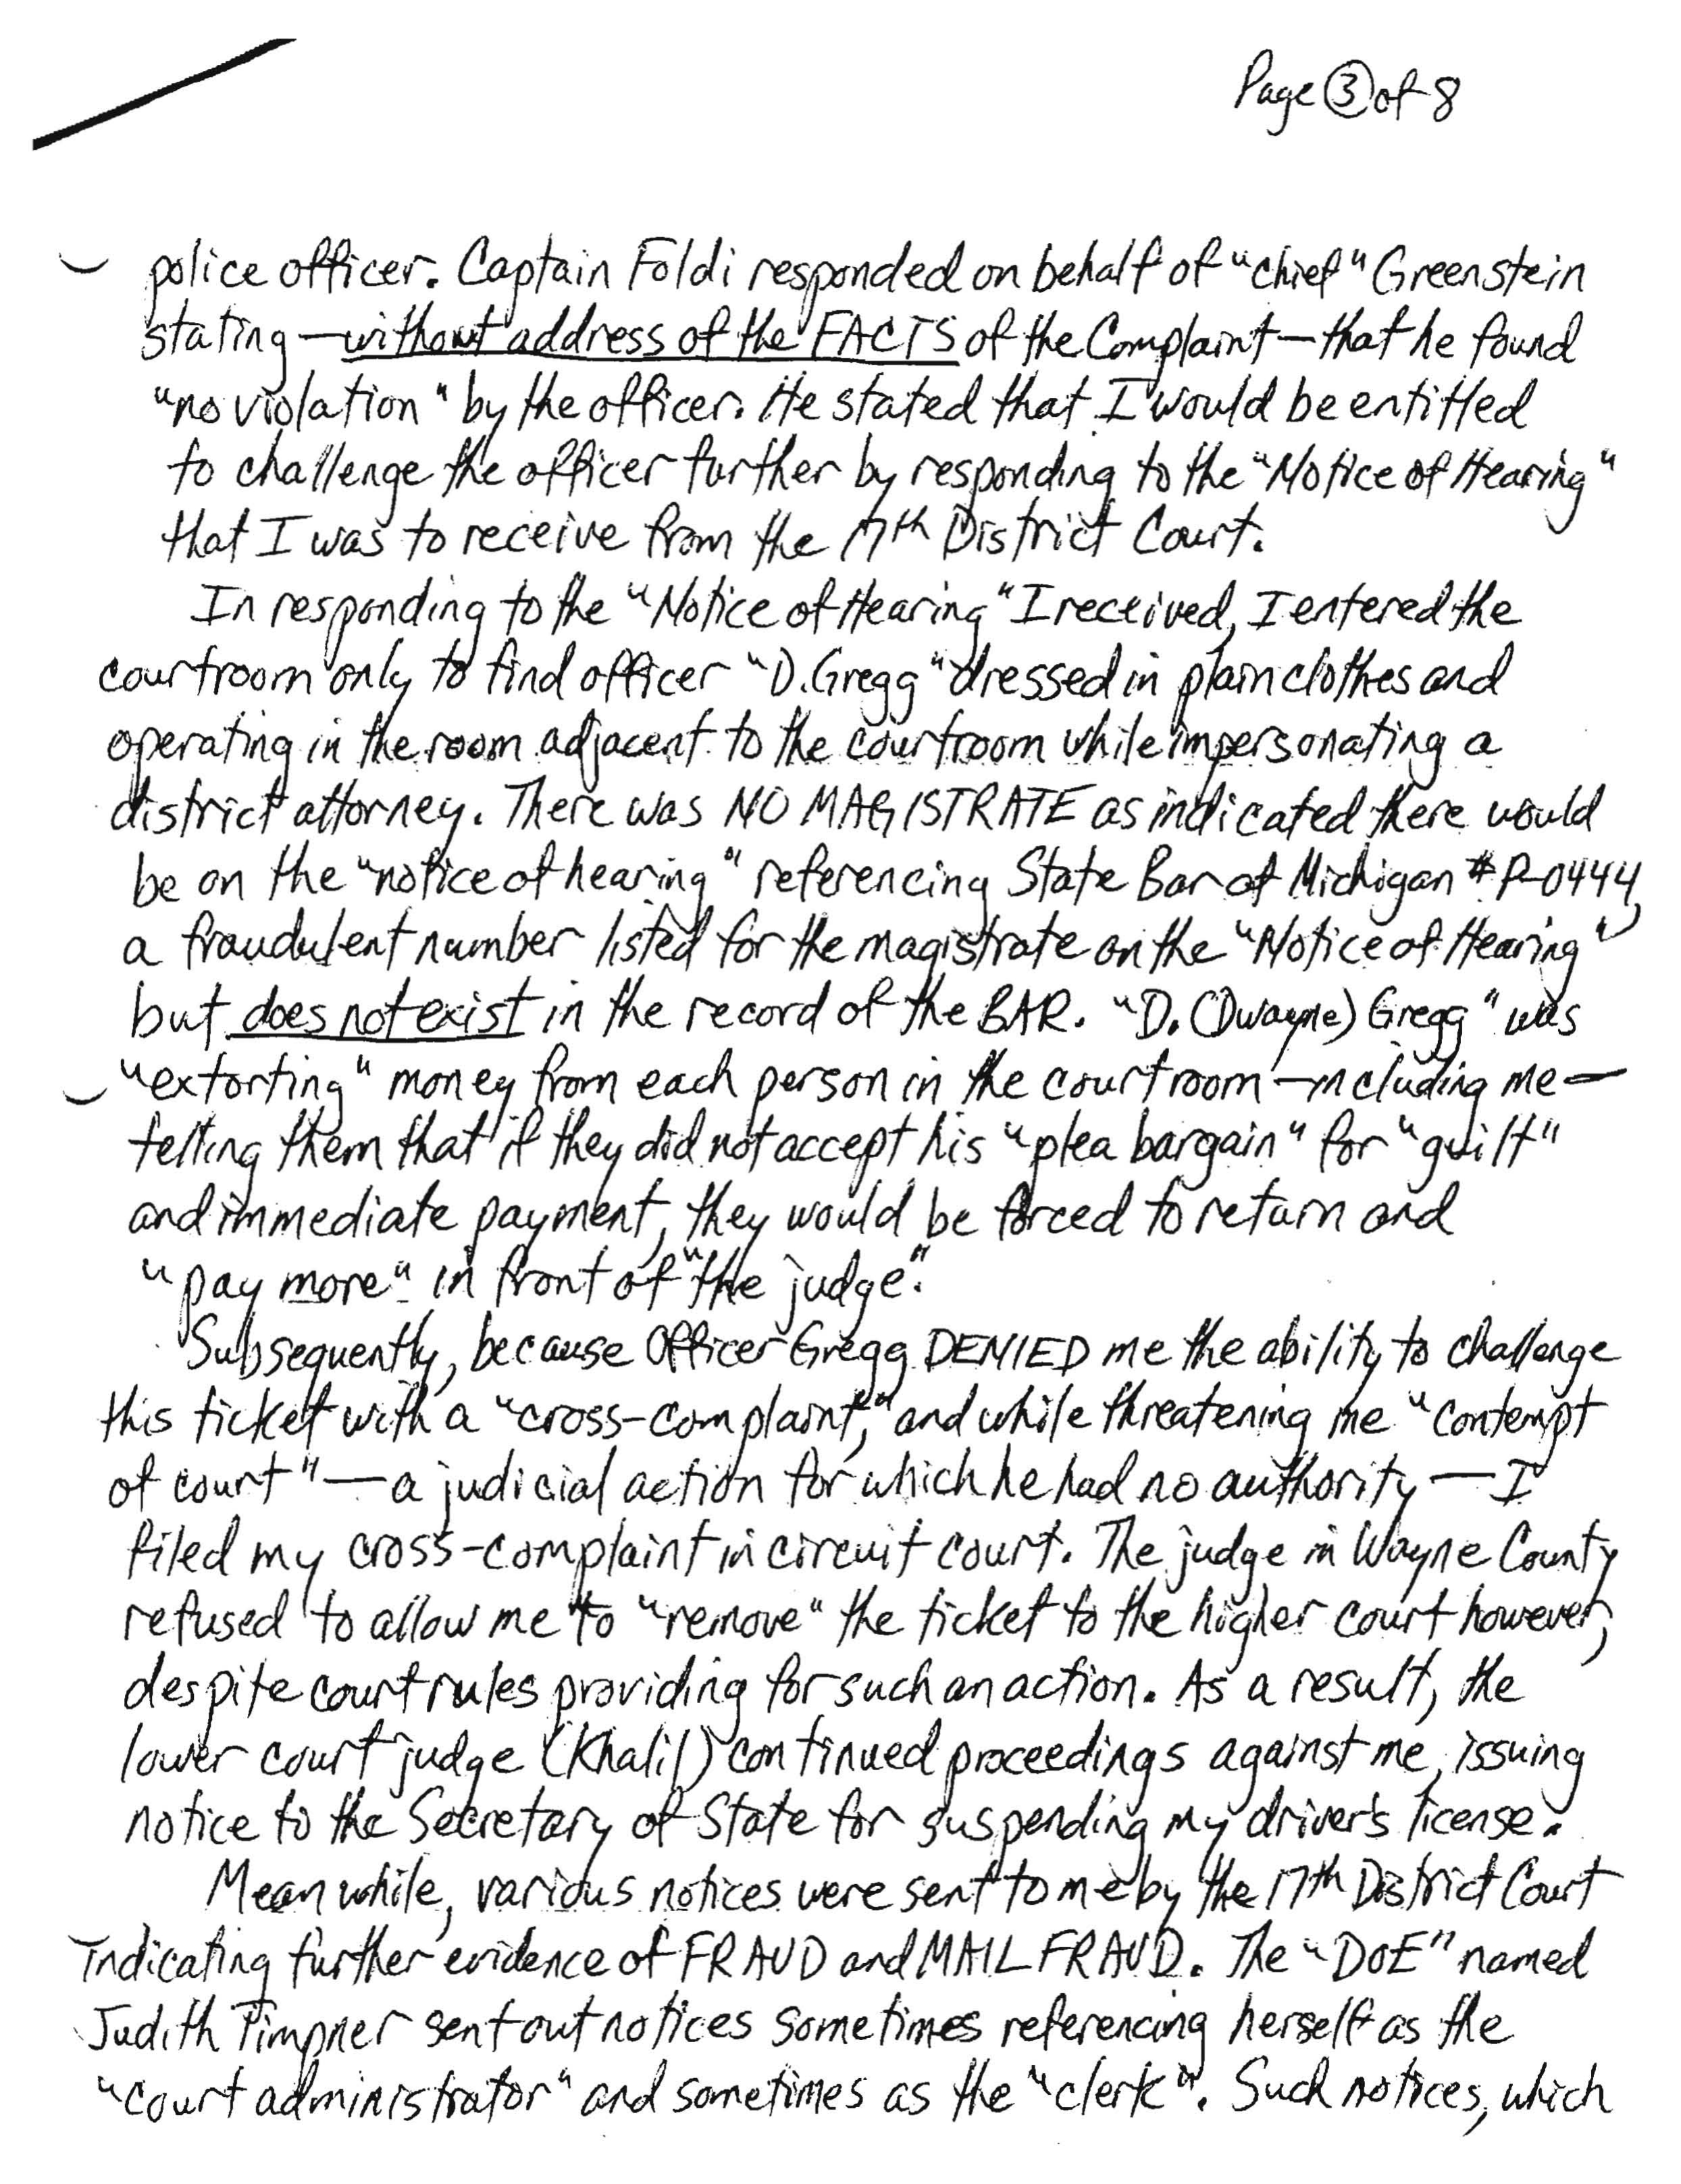 Page 3 of 8
police officer. Captain Foldi responded on behalf of "chief" Greenstein
stating—without address of the FACTS of the Complaint—that he found
"no violation" by the officer. He stated that I would be entitled
to challenge the officer further by responding to the "Notice of Hearing"
that I was to receive from the 17th District Court.
In responding to the "Notice of Hearing" I received, I entered the
courtroom only to find officer "D. Gregg" dressed in plain clothes and
operating in the room adjacent to the courtroom while impersonating a
district attorney. There was NO MAGISTRATE as indicated there would
be on the "notice of hearing" referencing State Bar of Michigan # P-0444,
a fraudulent number listed for the magistrate on the "Notice of Hearing"
but does not exist in the record of the BAR. "D. (Dwayne) Gregg" was
"extorting" money from each person in the courtroom—including me—
telling them that if they did not accept his "plea bargain" for "guilt"
and immediate payment, they would be forced to return and
"pay more" in front of "the judge".
Subsequently, because Officer Gregg DENIED me the ability to challenge
this ticket with a "cross-complaint," and while threatening me "contempt
of court"—a judicial action for which he had no authority—I
filed my cross-complaint in circuit court. The judge in Wayne County
refused to allow me to "remove" the ticket to the higher court however,
despite court rules providing for such an action. As a result, the
lower court judge (Khalil) continued proceedings against me, issuing
notice to the Secretary of State for suspending my driver's license.
Meanwhile, various notices were sent to me by the 17th District Court
indicating further evidence of FRAUD and MAIL FRAUD. The "DOE" named
Judith Timpner sent out notices sometimes referencing herself as the
"court administrator" and sometimes as the "clerk". Such notices, which